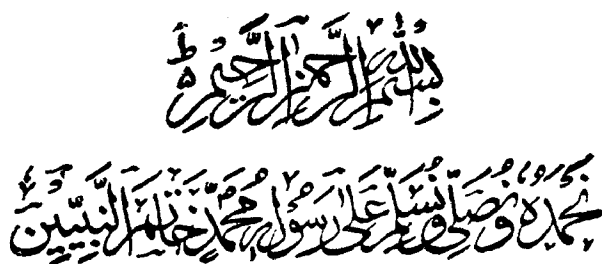 بِسْمِ اللهِ الرَّحْمٰنِ الرَّحِيْمِ ط
نَحْمَدُهُ وَنُصَلِّي وَنُسَلِّمُ عَلَى رَسُوْلِهِ مُحَمَّدٍ خَاتَمِ النَّبِيِّيْنَ